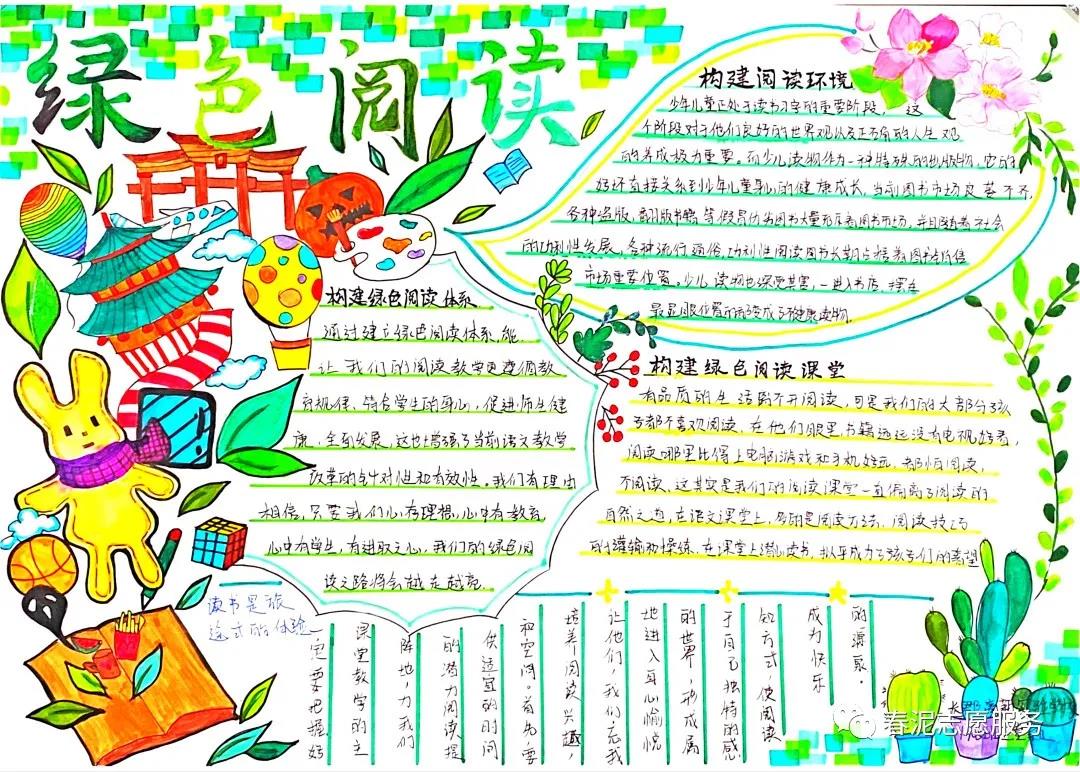 绿色阅读
构建阅读环境
少年儿童正处于读书习字的重要阶段，这
个阶段对于他们良好的世界观以及正常的人生观
的养成极为重要。而少儿读物作为一种特殊的出版物，它的
好坏直接关系到少年儿童身心的健康成长，当前图书市场良莠不齐，
各种盗版、翻版书籍，等假冒伪劣图书大量充斥着图书市场，并且随着社会
的功利性发展，各种流行通俗，功利性阅读图书长期占据着图书销售
市场重要位置。少儿读物也深受其害，一进入书店，摆在
最显眼位置而变成了不健康读物。
构建绿色阅读体系
通过建立绿色阅读体系，能
让我们的阅读教学更遵循教
育规律、符合学生的身心，促进师生健
康，全面发展，这也增强了当前语文教学
改革的针对性和有效性。我们有理由
相信，只要我们心存理想，心中有教育，
心中有学生，有进取之心，我们的绿色阅
读之路将会越走越亮
构建绿色阅读课堂
有品质的生活离不开阅读，可是我们的大部分孩
子都不喜欢阅读，在他们眼里书籍远远没有电视好看，
阅读哪里比得上电脑游戏和手机好玩，都怕阅读，
不阅读，这其实是我们的阅读课堂一直偏离了阅读的
自然之道，在语文课堂上，多的是阅读方法，阅读技巧
的灌输和操练，在课堂上潜心读书，似乎成为了孩子们的奢望
读书是旅
途式的体验
一定要把握好
课堂教学的主
阵地，力我们
的潜力阅读提
供适宜的时间
和空间。首先要
培养阅读兴趣，
让他们，我们在我
地进入身心愉悦
的世界，形成属
于自己独特的感
知方式，使阅读
成为快乐
的源泉。
春泥志愿服务